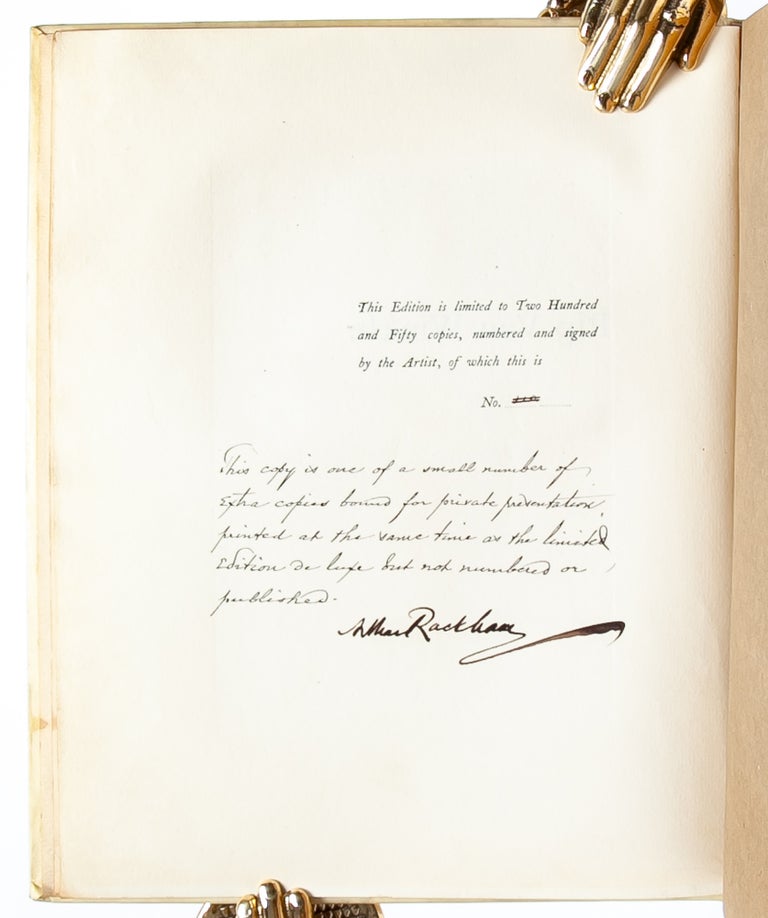 This Edition is limited to Two Hundred
and Fifty copies, numbered and signed
by the Artist, of which this is
No.
This copy is one of a small number of
extra copies bound for private presentation,
printed at the same time as the limited
Edition de luxe but not numbered or
published.
Arthur Rackham